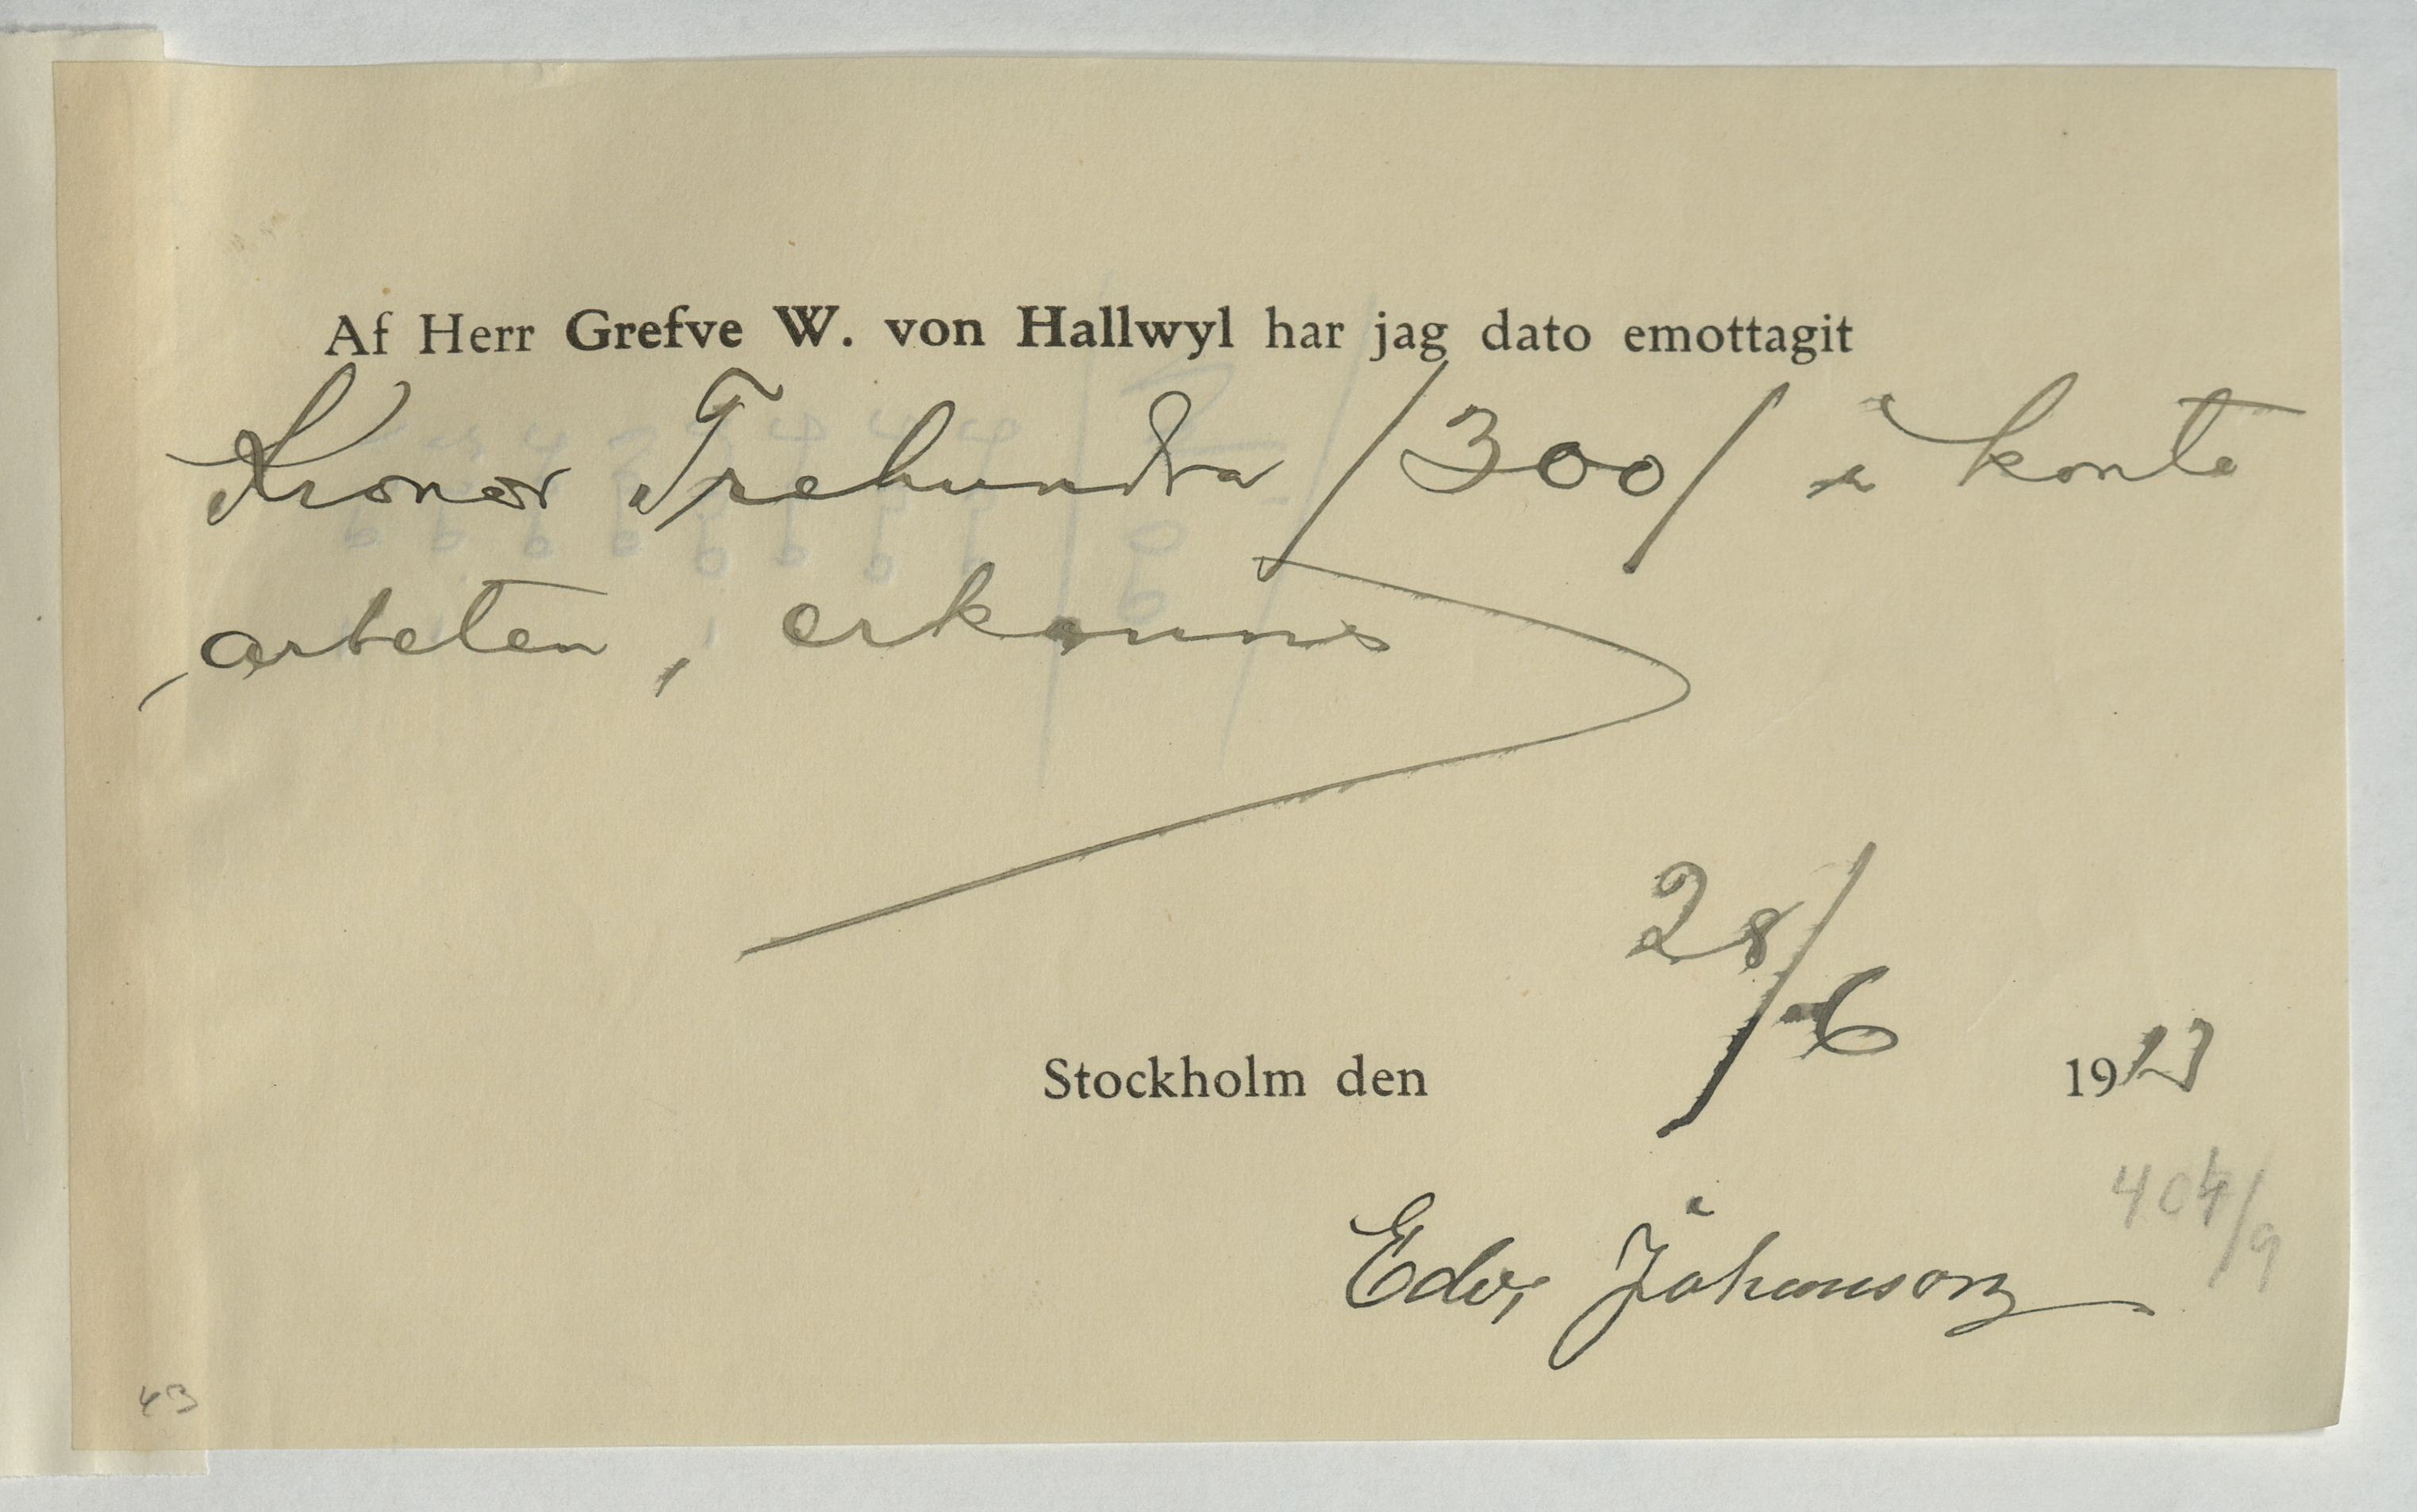 Af Herr Grefve W. von Hallwyl har jag dato emottagit
Kronor Trehundra /300/ à konto
arbeten, erkännes
28/6
Stockholm den 1913
404/9
Edv. Johanson
43